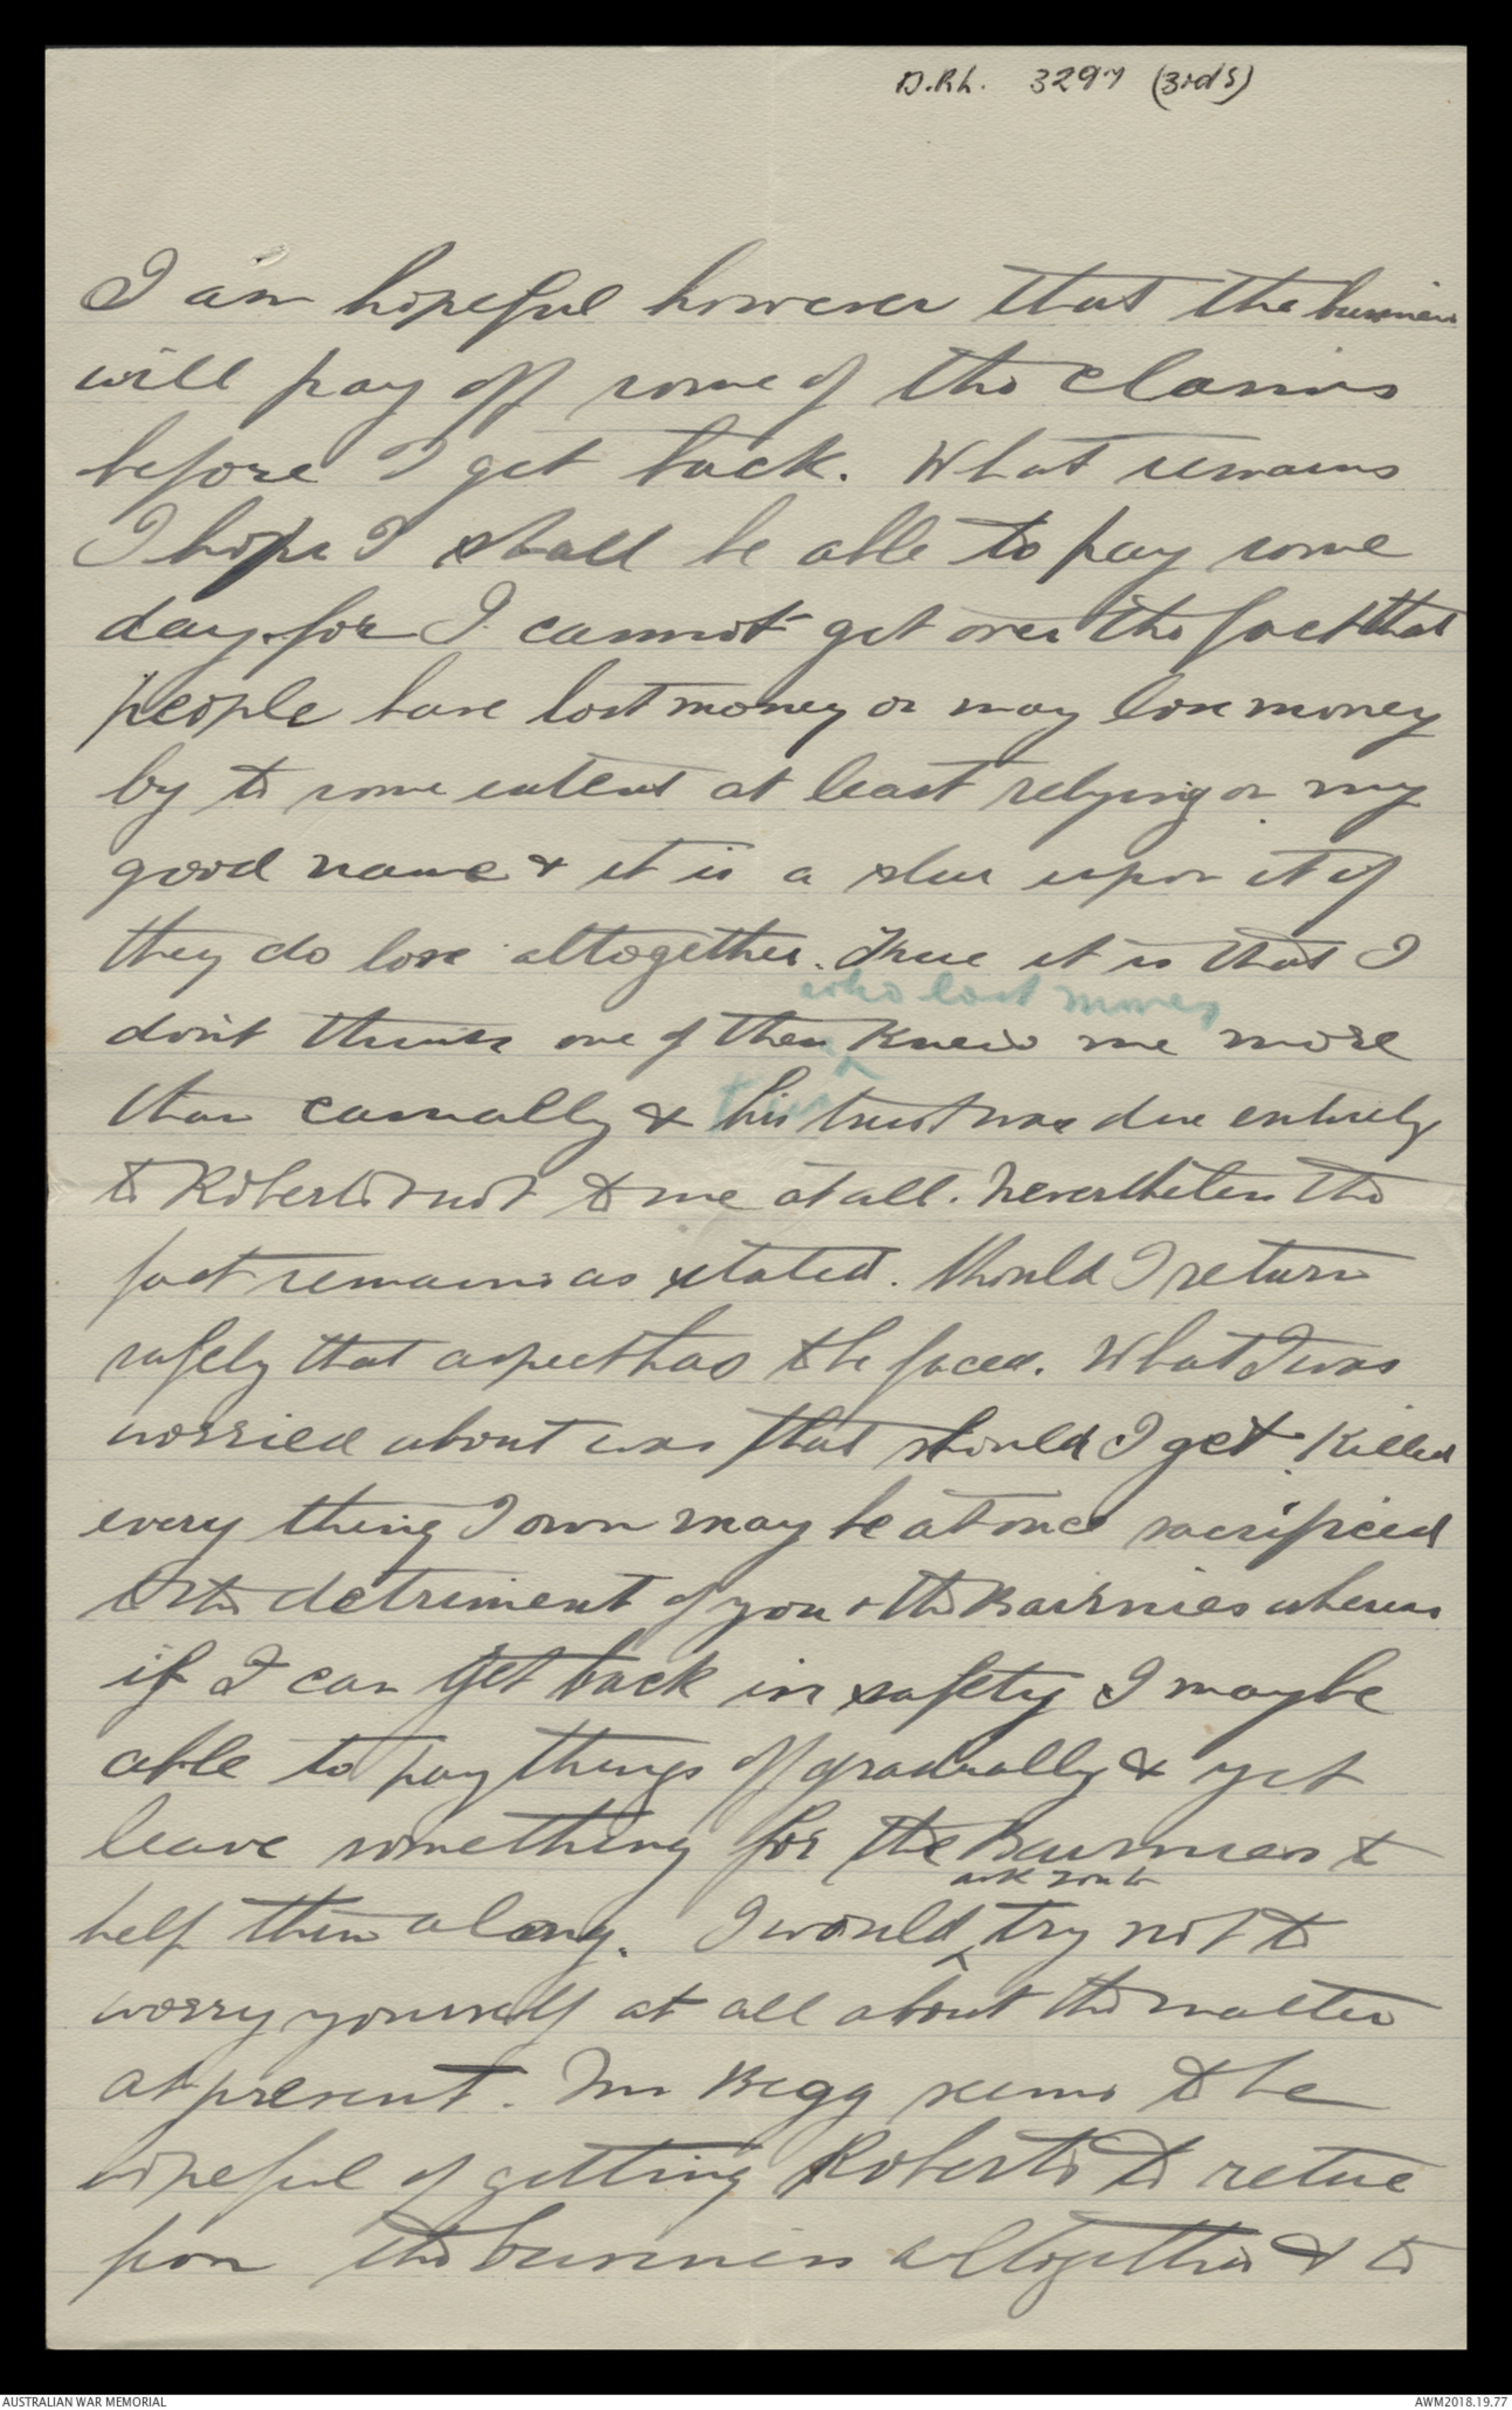 D.R.L. 3297 (3rd S)
I am hopeful however that the business
will pay off some of the claims
before I get back. What remains
I hope I shall be able to pay some
day for I cannot get over the fact that
people have lost money or may lose money
by to some extent at least relying on my
good name & it is a slur upon it if
they do lose altogether. True it is that I
who lost money
don't think one of them knew me more
than casually & his trust was due entirely
to Roberts & not to me at all. Nevertheless the
fact remains as stated. Should I return
safely that aspect has to be faced. What I was
worried about was that should I get killed
every thing I own may be at once sacrificed
to the detriment of you & the Bairnies whereas
if I can get back in safety I may be
able to pay things off gradually & yet
leave something for the Bairnies &
ask you to
help them along. I would try not to
worry yourself at all about the matter
at present. Mr Begg seems to be
hopeful of getting Roberts to retire
from the business altogether & to
AUSTRALIAN WAR MEMORIAL
AWM2018.19.77